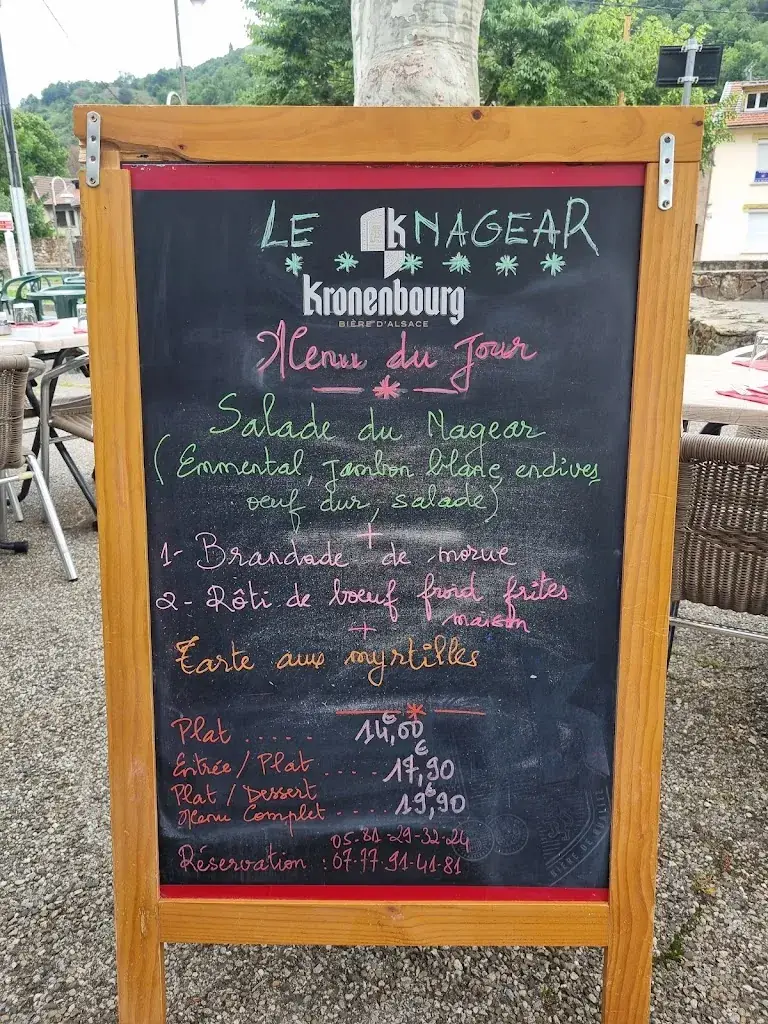 LE NAGEAR
k
Kronenbourg
BIÈRE D'ALSACE
Menu du Jour
Salade du Nagear
(Emmental, jambon blanc, endives,
oeuf dur, salade)
+
1- Brandade de morue
2- Rôti de boeuf froid frites
maison
+
Tarte aux myrtilles
Plat ...... 14,00€
Entrée / Plat .... 17,90€
Plat / Dessert
Menu Complet .... 19,90€
05-81-29-32-24
Réservation : 07-77-91-41-81